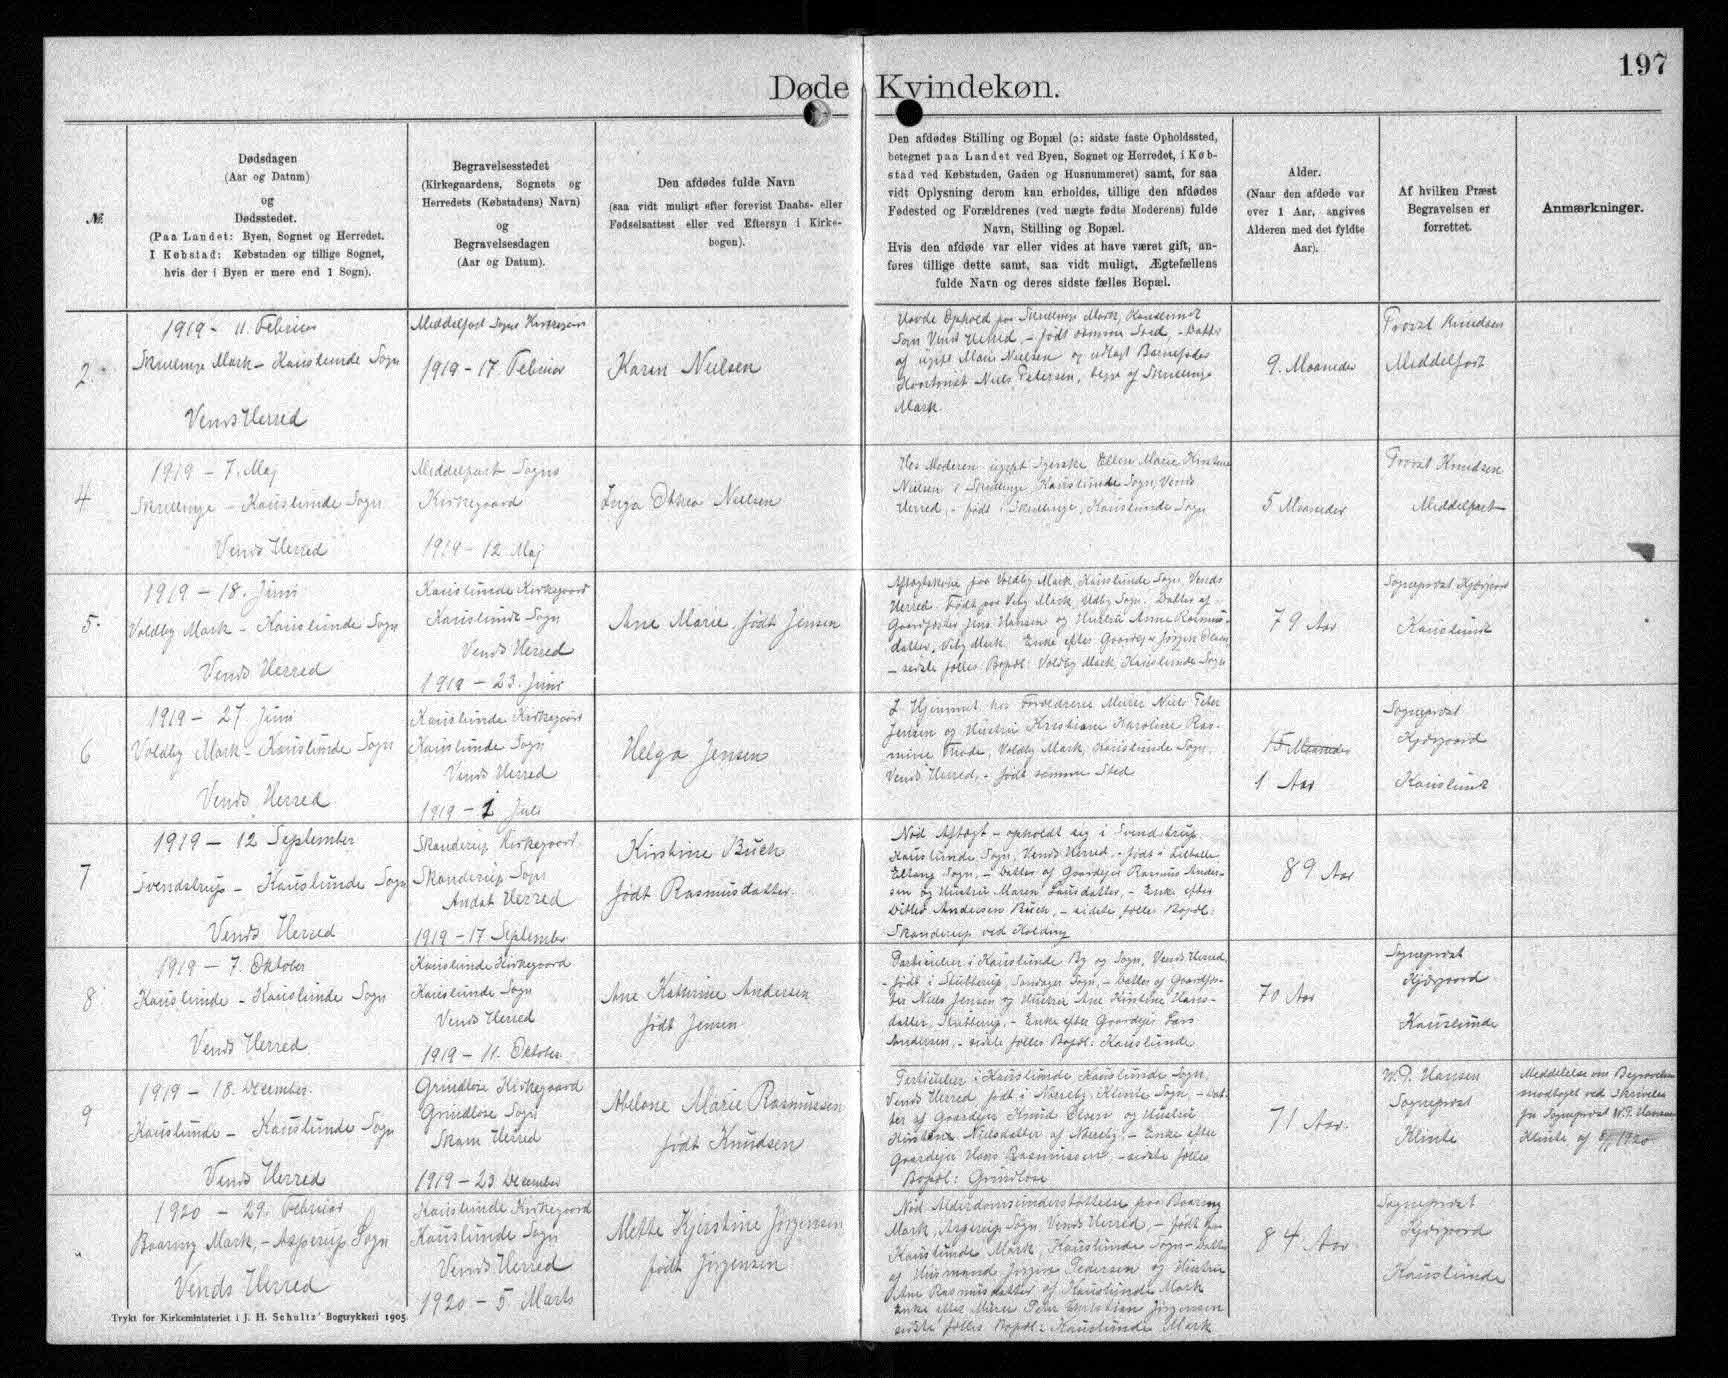 197
Døde Kvindekøn.
№
Dødsdagen
(Aar og Datum)
og
Dødsstedet.
(Paa Landet: Byen, Sognet og Herredet.
I Købstad: Købstaden og tillige Sognet,
hvis der i Byen er mere end 1 Sogn).
Begravelsesstedet
(Kirkegaardens, Sognets og
Herredets (Købstadens) Navn)
og
Begravelsesdagen
(Aar og Datum).
Den afdødes fulde Navn
(saa vidt muligt efter forevist Daabs- eller
Fødselsattest eller ved Eftersyn i Kirke-
bogen).
Den afdødes Stilling og Bopæl (ɔ: sidste faste Opholdssted,
betegnet paa Landet ved Byen, Sognet og Herredet, i Køb-
stad ved Købstaden, Gaden og Husnummeret) samt, for saa
vidt Oplysning derom kan erholdes, tillige den afdødes
Fødested og Forældrenes (ved uægte fødte Moderens) fulde
Navn, Stilling og Bopæl.
Hvis den afdøde var eller vides at have været gift, an-
føres tillige dette samt, saa vidt muligt, Ægtefællens
fulde Navn og deres sidste fælles Bopæl.
Alder.
(Naar den afdøde var
over 1 Aar, angives
Alderen med det fyldte
Aar).
Af hvilken Præst
Begravelsen er
forrettet.
Anmærkninger.
2
1919 - 11. Februar
Skrillinge Mark - Kauslunde Sogn
Vends Herred
Middelfart Sogns Kirkegaard
1919 - 17. Februar
Karen Nielsen
Havde Ophold paa Skrillinge Mark, Kauslunde
Sogn Vends Herred, - født samme Sted, - Datter
af ugift Marie Nielsen og udlagt Barnefader
Niels Petersen, begge af Skrillinge
Mark.
9. Maaneder
Provst Knudsen
Middelfart
4
1919 - 7. Maj
Skrillinge - Kauslunde Sogn
Vends Herred
Middelfart Sogns
Kirkegaard
1919 - 12. Maj
Inga Nielsen
Hos Moderen ugift Syerske Ellen Marie Kirstine
Nielsen i Skrillinge, Kauslunde Sogn, Vends
Herred, - født i Skrillinge, Kauslunde Sogn
5 Maaneder
Provst Knudsen
Middelfart
5.
1919 - 18. Juni
Voldby Mark - Kauslunde Sogn
Vends Herred
Kauslunde Kirkegaard
Kauslunde Sogn
Vends Herred
1919 - 23. Juni
Ane Marie, født Jensen
Aftægtskone paa Voldby Mark, Kauslunde Sogn, Vends
Herred. Født paa Viby Mark, Udby Sogn. Datter af
Gaardfæster Jens Hansen og Hustru Anne Rasmus-
datter, Viby Mark. Enke efter Gaardejer Jørgen Olsen
- sidste fælles Bopæl: Voldby Mark, Kauslunde Sogn
79 Aar
Sognepræst Kjærgaard
Kauslunde
6
1919 - 27 Juni
Voldby Mark - Kauslunde Sogn
Vends Herred
Kauslunde Kirkegaard
Kauslunde Sogn
Vends Herred
1919 - 1 Juli
Helga Jensen
I Hjemmet hos Forældrene Murer Niels Peter
Jensen og Hustru Kristiane Karoline Ras-
mine Voldby Mark, Kauslunde Sogn,
Vends Herred, - født samme Sted
15 Maaneder
1 Aar
Sognepræst
Kjærgaard
Kauslunde
7
1919 - 12 September
Svendstrup - Kauslunde Sogn
Vends Herred
Skanderup Kirkegaard
Skanderup Sogn
Andst Herred
1919 - 17 September
Kirstine Buch
født Rasmusdatter
Nød Aftægt - opholdt sig i Svendstrup,
Kauslunde Sogn, Vends Herred, - født i Lilballe
Eltang Sogn, - Datter af Gaardejer Rasmus Ander-
sen og Hustru Maren Lausdatter, - Enke efter
Ditlev Andersen Buch, - sidste fælles Bopæl:
Skanderup ved Kolding
89 Aar
8
1919 - 7. Oktober
Kauslunde - Kauslunde Sogn
Vends Herred
Kauslunde Kirkegaard
Kauslunde Sogn
Vends Herred
1919 - 11. Oktober
Ane Kathrine Andersen
født Jensen
Particulier i Kauslunde By og Sogn, Vends Herred,
- født i Skibterup, Sandager Sogn, - Datter af Gaardfæ-
ster Niels Jensen og Hustru Ane Kirstine Hans-
datter, - Enke efter Gaardejer Lars
Andersen, - sidste fælles Bopæl: Kauslunde
70 Aar
Sognepræst
Kjærgaard
Kauslunde
9
1919 - 18. December.
Kauslunde - Kauslunde Sogn
Vends Herred
Grindløse Kirkegaard
Grindløse Sogn
Skam Herred
1919 - 23 December
Abelone Marie Rasmussen
født Knudsen
Particulier i Kauslunde Kauslunde Sogn,
Vends Herred født i Nørreby, Klinte Sogn, - Dat-
ter af Gaardejer Knud Olsen og Hustru
Kirstine Nielsdatter af Nørreby, - Enke efter
Gaardejer Hans Rasmussen, - sidste fælles
Bopæl: Grindløse
71 Aar.
W.P. Hansen
Sognepræst
Klinte
Meddelelse om Begravelsen
modtaget ved Skrivelse
fra Sognepræst W.P. Hansen
Klinte, af 1920
"
1920 - 29. Februar
Baaring Mark, - Asperup Sogn
Vends Herred
Kauslunde Kirkegaard
Kauslunde Sogn
Vends Herred
1920 - 5 Marts
Mette Kjerstine Jørgensen
født Jørgensen
Nød Alderdomsunderstøttelse paa Baaring
Mark, Asperup Sogn Vends Herred - født paa
Kauslunde Mark, Kauslunde Sogn - Datter
af Husmand Jørgen Pedersen og Hustru
Ane Rasmusdatter af Kauslunde Mark
Enke efter Murer Peter Christian Jørgensen
sidste fælles Bopæl: Kauslunde Mark
84 Aar
Sognepræst
Kjærgaard
Kauslunde
Trykt for Kirkeministeriet i J. H. Schultz' Bogtrykkeri 1905.